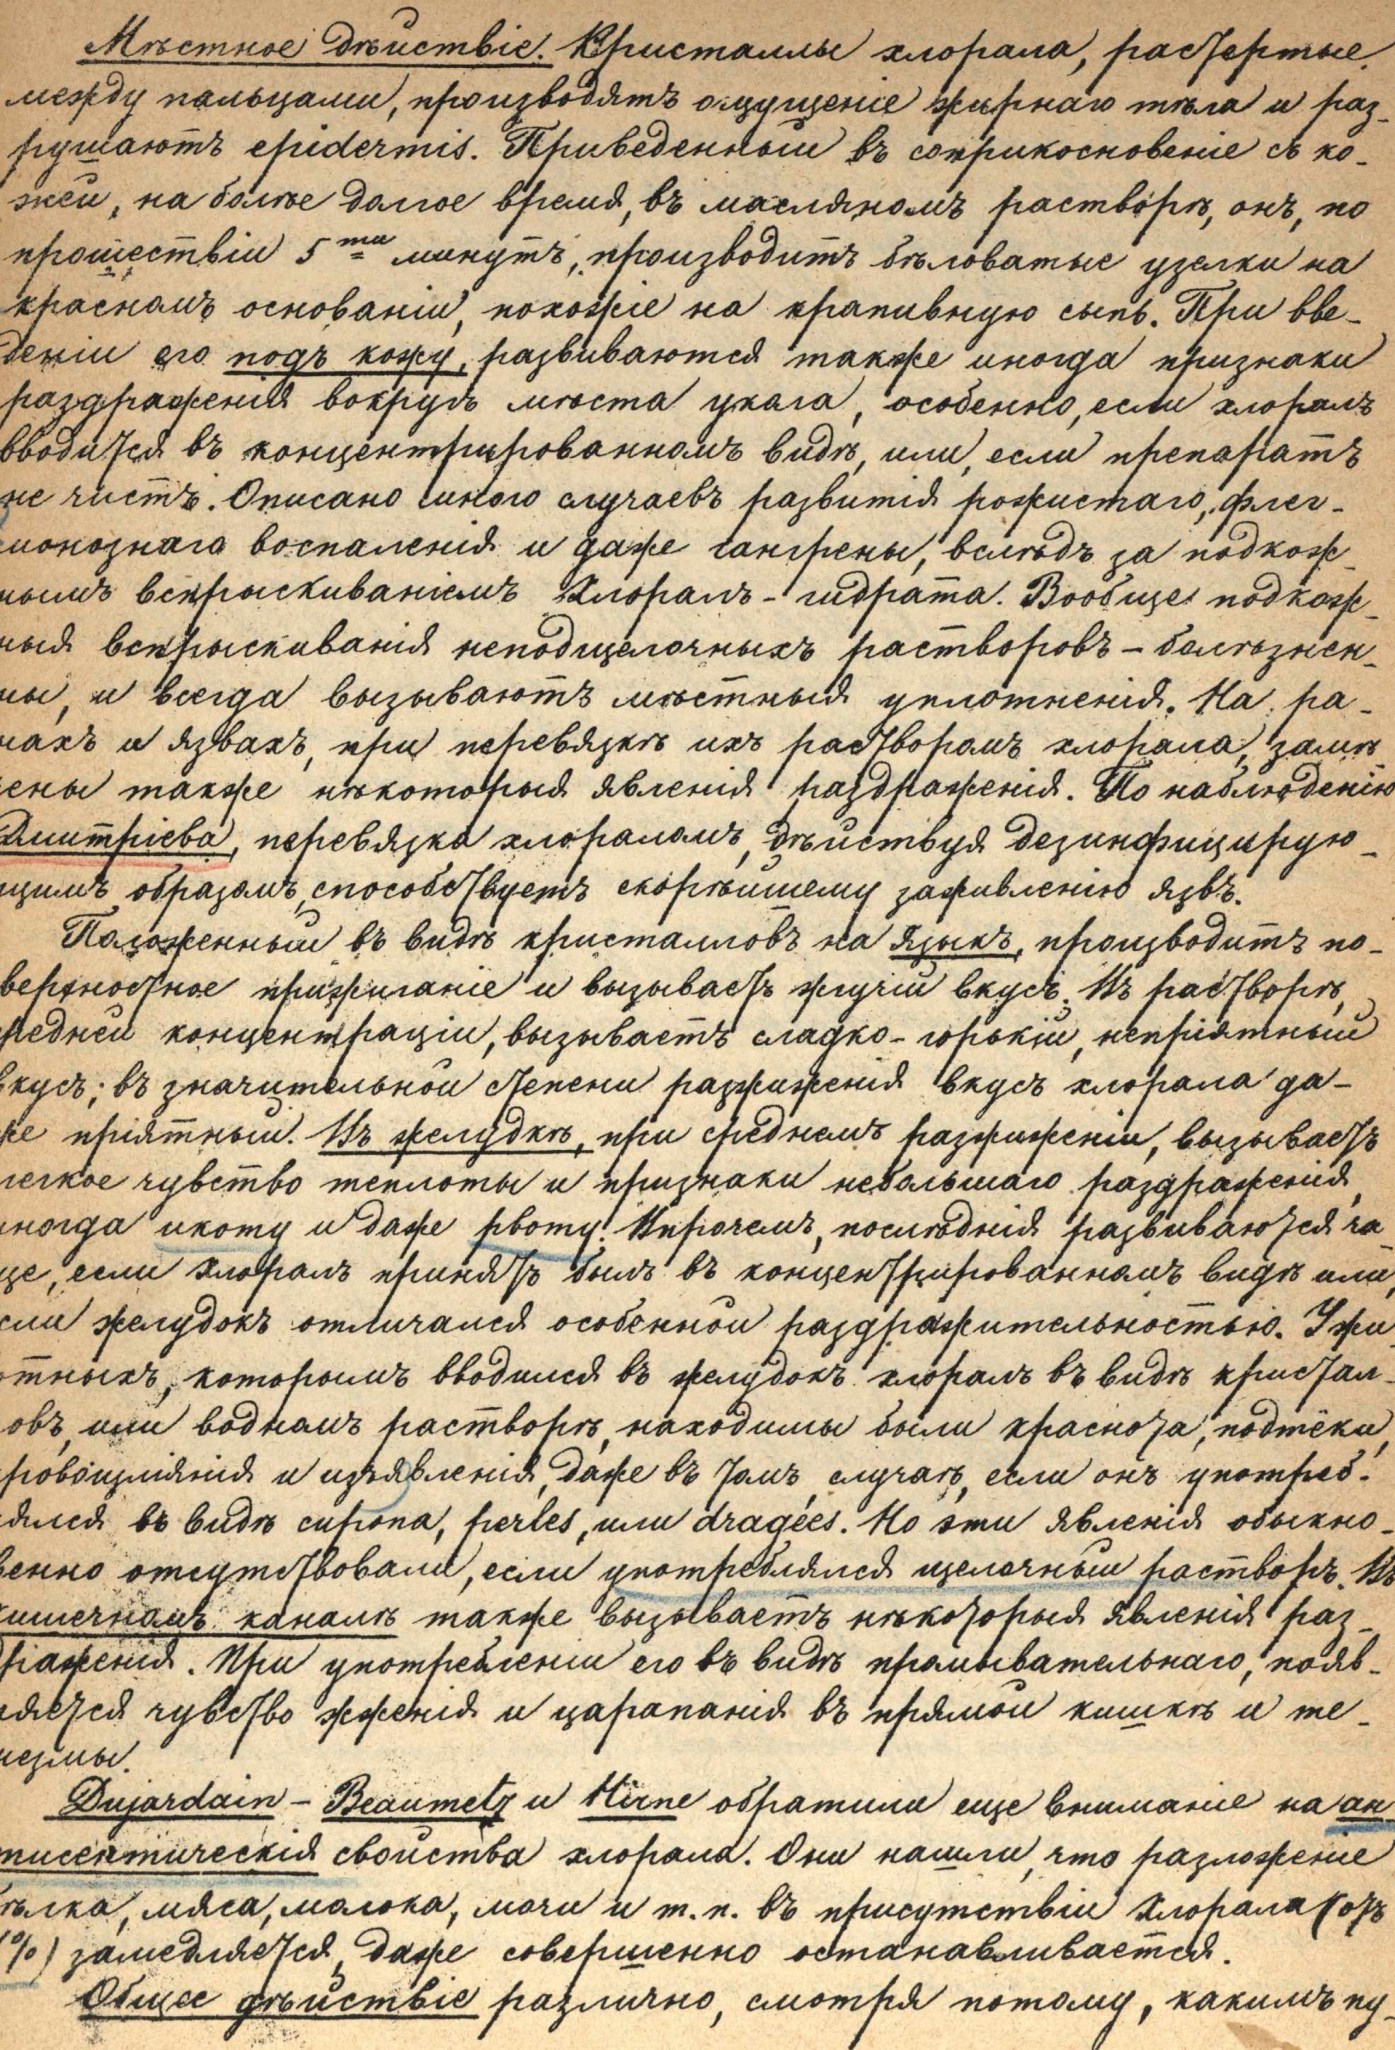 Мѣстное дѣйствіе. Кристаллы хлорала, растертые
между пальцами, производятъ ощущеніе жирнаго тѣла и раз-
рушаютъ epidermis. Приведенный въ соприкосновеніе съ ко-
жей, на болѣе долгое время, въ масляномъ растворѣ, онъ, по
прошествіи 5ти минутъ, производитъ бѣловатые узелки на
красномъ основаніи, похожіе на крапивную сыпь. При вве-
деніи его подъ кожу, развиваются также иногда признаки
раздраженія вокругъ мѣста укола, особенно, если хлоралъ
вводится въ концентрированномъ видѣ, или, если препаратъ
не чистъ. Описано много случаевъ развитія рожистаго, флег-
монознаго воспаленія и даже гангрены, вслѣдъ за подкож-
нымъ вспрыскиваніемъ Хлоралъ-гидрата. Вообще подкож-
ныя вспрыскиванія неподщелочныхъ растворовъ – болѣзнен-
ны, и всегда вызываютъ мѣстныя уплотненія. На ра-
нахъ и язвахъ, при перевязкѣ ихъ растворомъ хлорала, замѣ
чены также нѣкоторыя явленія раздраженія. По наблюденію
Дмитріева, перевязка хлораломъ, дѣйствуя дезинфицирую-
щимъ образомъ, способствуетъ скорѣйшему заживленію язвъ.
Положенный въ видѣ кристалловъ на языкъ, производитъ по-
верхностное прижиганіе и вызываетъ жгучій вкусъ. Въ растворѣ,
средней концентраціи, вызываетъ сладко-горькій, непріятный
вкусъ; въ значительной степени разжиженія вкусъ хлорала да-
же пріятный. Въ желудкѣ, при среднемъ разжиженіи, вызываетъ
легкое чувство теплоты и признаки небольшаго раздраженія,
иногда икоту и даже рвоту. Впрочемъ, послѣднія развиваются ча-
ще, если хлоралъ принятъ былъ въ концентрированномъ видѣ или,
если желудокъ отличался особенной раздражительностью. У жи
отныхъ, которымъ вводился въ желудокъ хлоралъ въ видѣ кристал-
овъ, или водномъ растворѣ, находимы были краснота, подтёки,
кровоизліянія и изъявленія, даже въ томъ случаѣ, если онъ употреб-
лялся въ видѣ сиропа, perles, или dragées. Но эти явленія обыкно-
венно отсутствовали, если употреблялся щелочный растворъ. Въ
кишечномъ каналѣ также вызываетъ нѣкоторыя явленія раз-
драженія. При употребленіи его въ видѣ промывательнаго, появ-
ляется чувство жженія и царапанія въ прямой кишкѣ и те-
незмы.
Dujardain – Beaumetz и Hirne обратили еще вниманіе на ан-
тисептическія свойства хлорала. Они нашли, что разложеніе
бѣлка, мяса, молока, мочи и т.п. въ присутствіи Хлорала (отъ
%) замедляется, даже совершенно останавливается.
Общее дѣйствіе различно, смотря потому, какимъ пу-